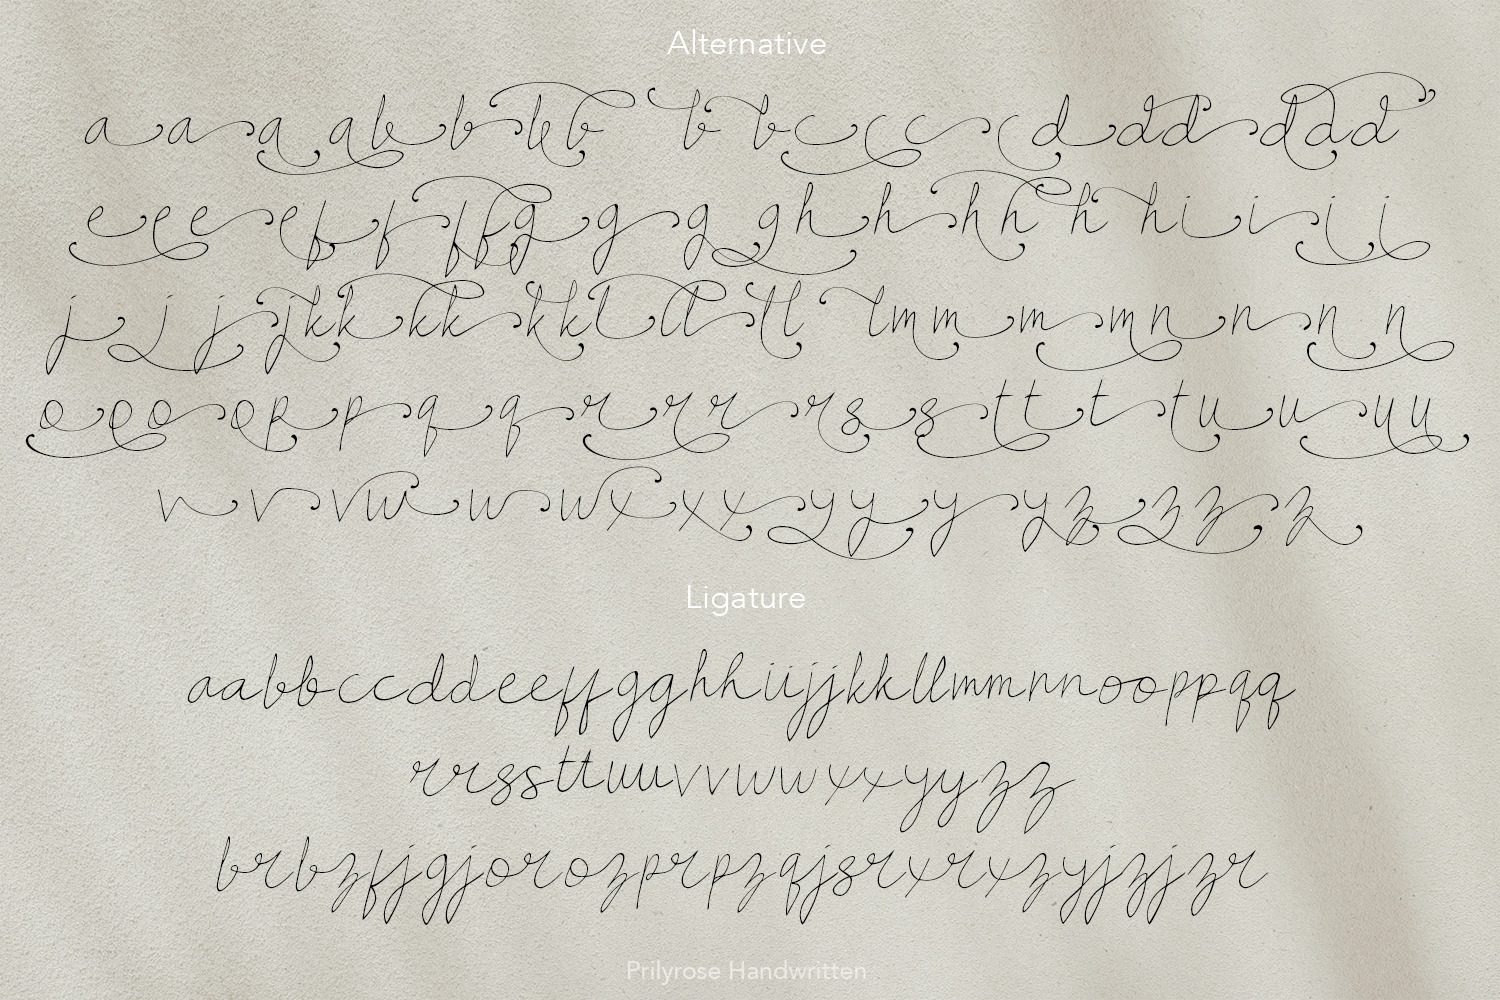 Alternative
a a a a b b b b b b c c c c d d d d d d
e e e e f f f f g g g g h h h h h h i i i i
j j j j k k k k k k l l l l l l m m m m n n n n
o o o o p p q q r r r r s s t t t t u u u u
v v v w w w x x x y y y y z z z z
Ligature
aabbccddeeffgghhiijjkkllmmnnooppqq
rrssttuuvvwwxxyyzz
brbzfjgjorozprpzqjsrxrxzyjzjzr
Prilyrose Handwritten